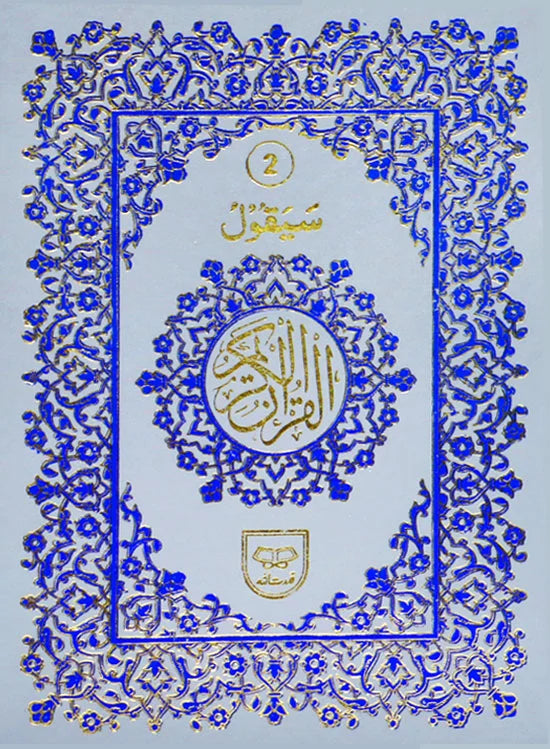 2
سَيَقُوْلُ
القرآن الكريم
قدرت الله